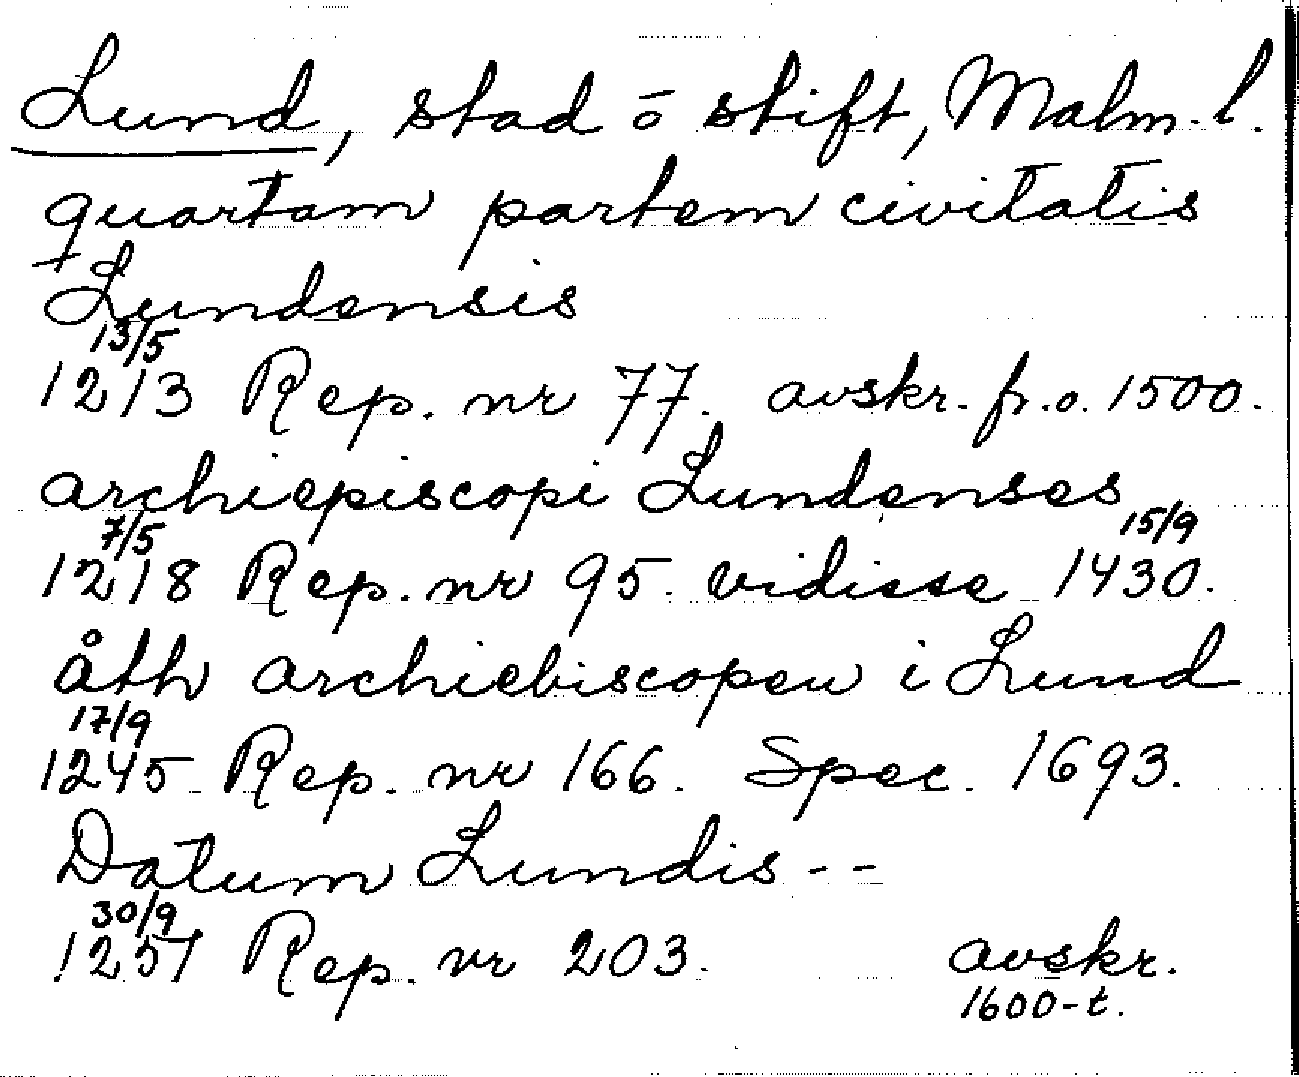 Lund, stad o stift, Malm. l.
quartam partem civitatis
Lundensis
13/5
1213 Rep. nr 77. avskr. fr. o. 1500.
archiepiscopi Lundenses
7/5 15/9
1218 Rep. nr 95 vidisse 1430.
åth archiebiscopen i Lund
17/9
1245 Rep. nr 166. Spec. 1693.
Datum Lundis --
30/9
1257 Rep. nr 203. avskr.
1600-t.